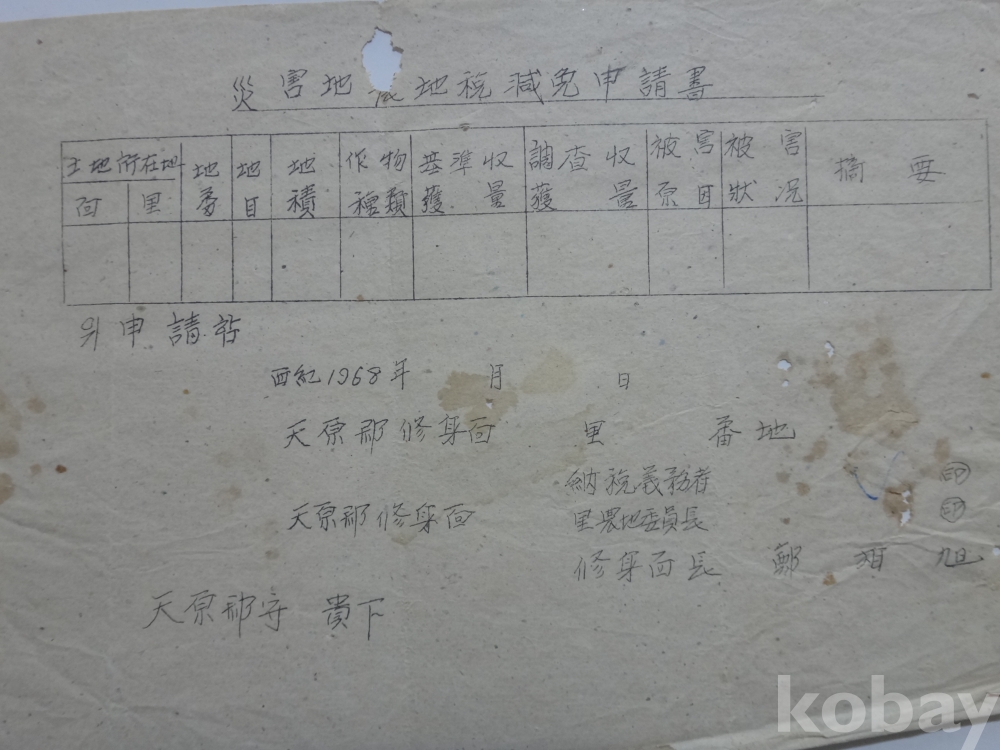 災害地 地稅減免申請書
土地所在地 地番 地目 地積 作物種類 基準收穫量 調査收穫量 被害原因 被害狀況 摘要
面 里
위 申請함
西紀1968年 月 日
天原郡修身面 里 番地
納稅義務者 印
天原郡修身面 里農地委員長 印
修身面長 鄭 旭
天原郡守 貴下
kobay